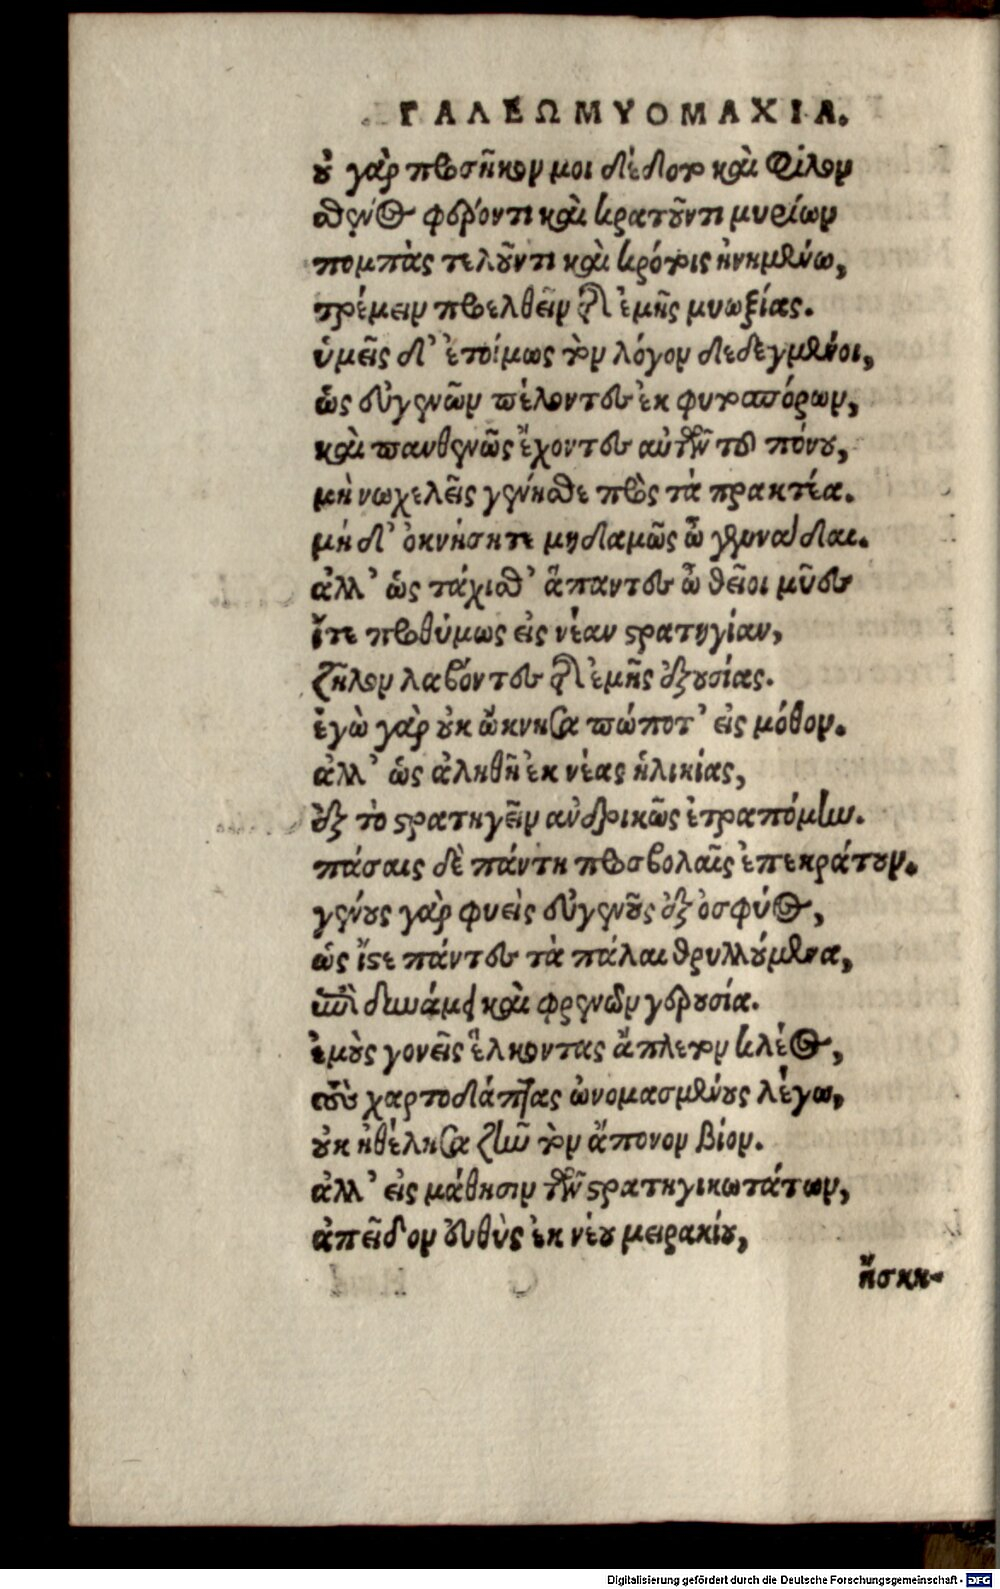 ΓΑΛΕΩΜΥΟΜΑΧΙΑ.
οὐ γὰρ προσῆκον μοι δέδοκται καὶ φίλον
σθένος φέροντι καὶ κρατοῦντι μυρίων
πομπὰς τελοῦντι καὶ κρότοις ἠνημένῳ,
τρέμειν προελθεῖν τῆς ἐμῆς μυωξίας.
ὑμεῖς δ' ἑτοίμως τὸν λόγον δεδεγμένοι,
ὡς εὐγενῶν πέλοντες ἐκ φυτοσπόρων,
καὶ πανθενῶς ἔχοντες αὐτῶν τοῦ πόνου,
μὴ νωχελεῖς γένησθε πρὸς τὰ πρακτέα.
μὴ δ' ὀκνήσητε μηδαμῶς ὦ γεννάδαι.
ἀλλ' ὡς τάχισθ' ἅπαντες ὦ θεῖοι μῦες
ἴτε προθύμως εἰς νέαν στρατηγίαν,
ζῆλον λαβόντες τῆς ἐμῆς ἐξουσίας.
ἐγὼ γὰρ οὐκ ὤκνησα πώποτ' εἰς μόθον.
ἀλλ' ὡς ἀληθῆ ἐκ νέας ἡλικίας,
ἐξ τὸ στρατηγεῖν ἀνδρικῶς ἐτραπόμην.
πάσαις δὲ πάντη προσβολαῖς ἐπεκράτουν.
γένους γὰρ φυεὶς εὐγενοῦς ἐξ ὀσφύος,
ὡς ἴστε πάντες τὰ πάλαι θρυλλούμενα,
ἐπὶ δυνάμει καὶ φρενῶν γερουσία.
ἐμοὺς γονεῖς ἕλκοντας ἄπλετον κλέος,
τοὺς χαρτοδάπτας ὠνομασμένους λέγω,
οὐκ ἠθέλησα ζῆν τὸν ἄπονον βίον.
ἀλλ' εἰς μάθησιν τῶν στρατηγικωτάτων,
ἀπεῖδον εὐθὺς ἐκ νέου μειρακίου,
ἤσκη-
Digitalisierung gefördert durch die Deutsche Forschungsgemeinschaft - DFG